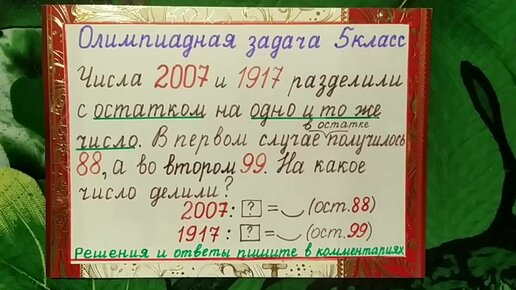 Олимпиадная задача 5класс
Числа 2007 и 1917 разделили
с остатком на одно и то же
в остатке
число. В первом случае получилось
88, а во втором 99. На какое
число делили?
2007 : ? = (ост. 88)
1917 : ? = (ост. 99)
Решения и ответы пишите в комментариях